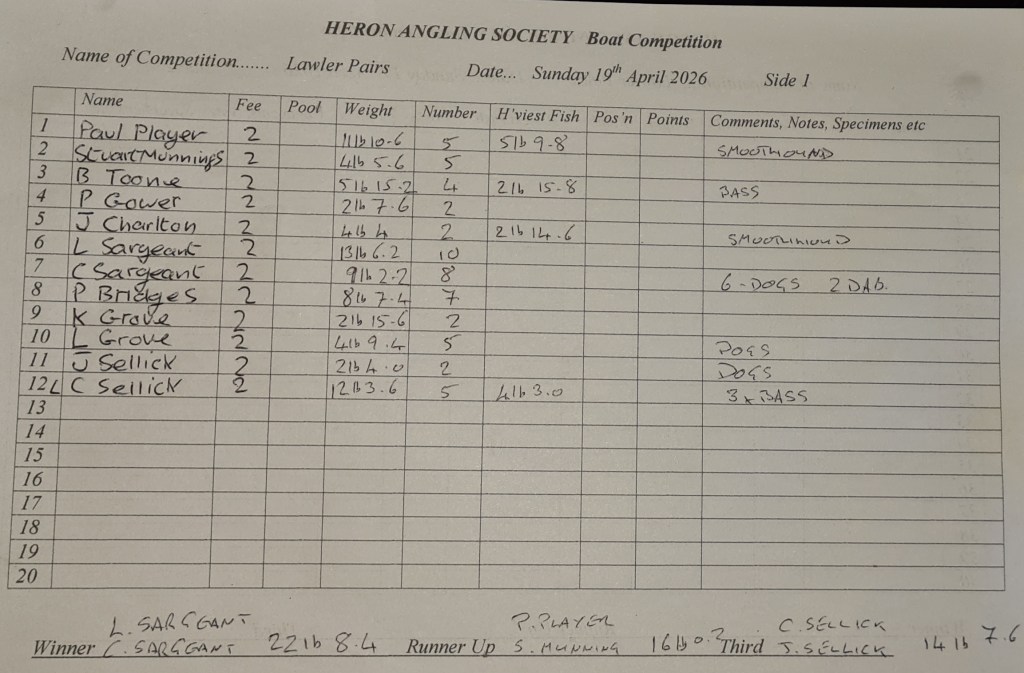 HERON ANGLING SOCIETY Boat Competition
Name of Competition....... Lawler Pairs Date... Sunday 19th April 2026 Side 1
Name Fee Pool Weight Number H'viest Fish Pos'n Points Comments, Notes, Specimens etc
1 Paul Player 2 11lb 10-6 5 5lb 9-8 SMOOTHOUND
2 Stuart Munnings 2 4lb 5-6 5
3 B Toone 2 5lb 15-2 4 2lb 15-8 BASS
4 P Gower 2 2lb 7-6 2
5 J Charlton 2 4lb 4 2 2lb 14-6
6 L Sargeant 2 13lb 6.2 10
7 C Sargeant 2 9lb 2-2 8 6-DOGS 2 DAB.
8 P Bridges 2 8lb 7-4 7
9 K Grove 2 2lb 15-6 2
10 L Grove 2 4lb 9.4 5 DOGS
11 J Sellick 2 2lb 4.0 2 DOGS
12 C Sellick 2 12lb 3-6 5 4lb 3.0 3x BASS
13
14
15
16
17
18
19
20
L. SARGEANT P. PLAYER C. SELLICK
Winner C. SARGEANT 22lb 8.4 Runner Up S. MUNNING 16lb 0.2 Third J. SELLICK 14lb 7.6